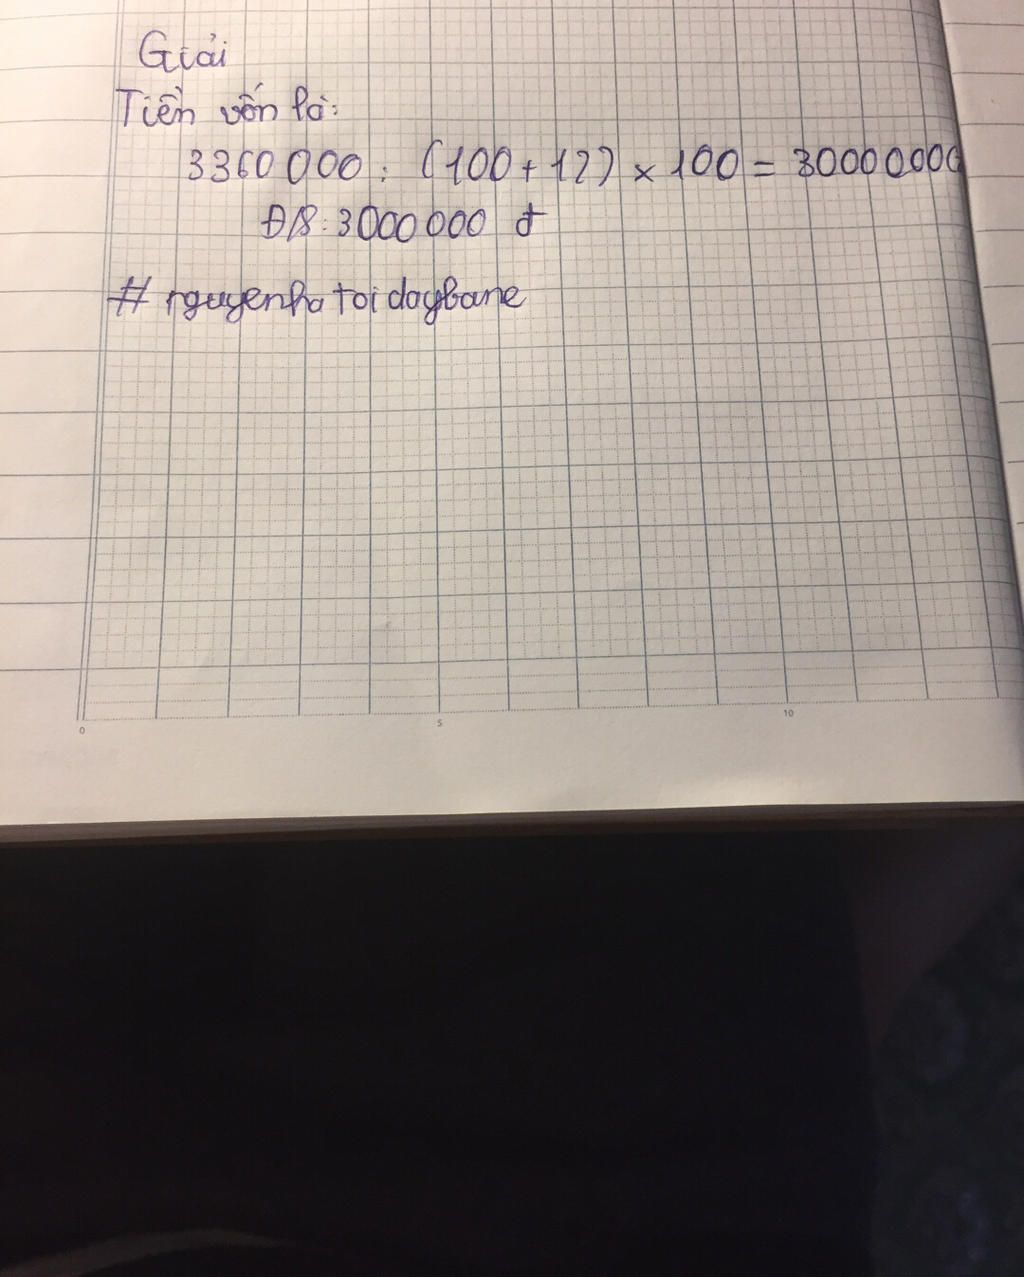 Giải
Tiền vốn là:
3360 000 : (100 + 12) × 100 = 3000 0000
Đ/S: 3000 000 đ
# nguyenha toi daybane
0 5 10